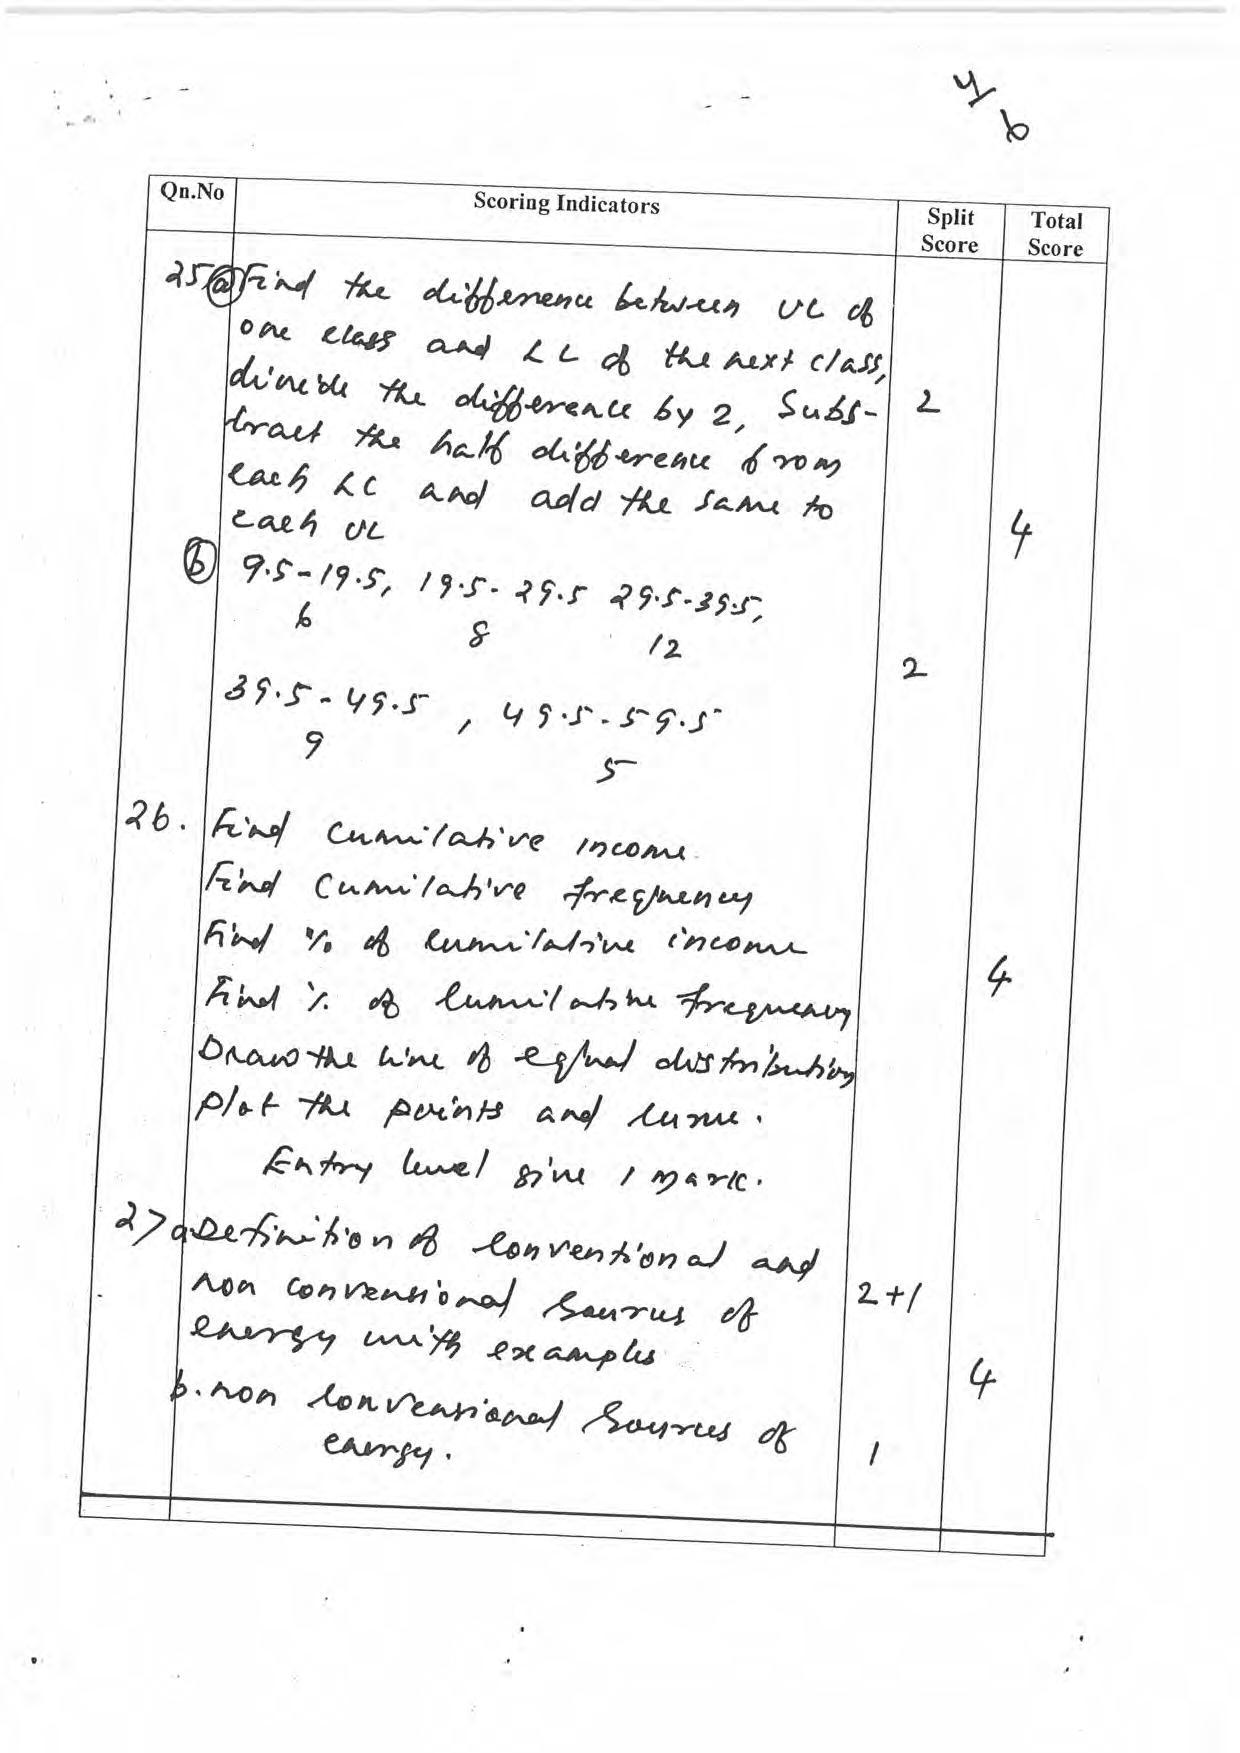 4/6
Qn.No Scoring Indicators Split Score Total Score
25 (a) Find the difference between UL of
one class and LL of the next class,
divide the difference by 2, Subs-
tract the half difference from 2
each LC and add the same to
each UL 4
(b) 9.5-19.5, 19.5-29.5 29.5-39.5,
6 8 12
2
39.5-49.5, 49.5-59.5
9 5
26. Find Cumilative income
Find Cumilative frequency
Find % of Cumilative income
Find % of Cumilative frequency 4
Draw the line of equal distribution
Plot the points and curve.
Entry level give 1 mark.
27 a. Definition of Conventional and
non conventional Sources of 2+1
energy with examples
4
b. non Conventional Sources of
energy. 1